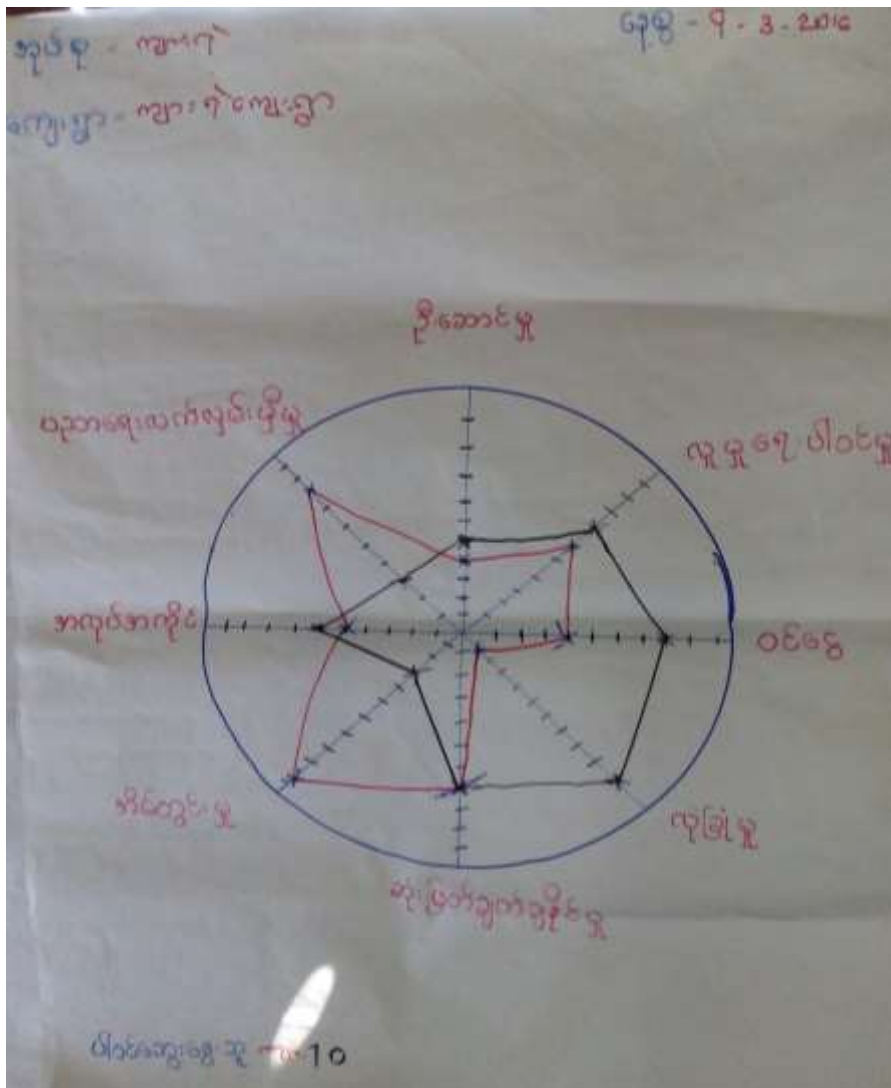 အုပ်စု - ကျားရဲ
နေ့စွဲ - 9 - 3 - 2016
ကျေးရွာ - ကျားရဲကျေးရွာ
ဦးဆောင်မှု
ပညာရေးလက်လှမ်းမှီမှု
လူမှုရေးပါဝင်မှု
အလုပ်အကိုင်
ဝင်ငွေ
အိမ်တွင်းမှု
လုံခြုံမှု
ဆုံးဖြတ်ချက်ချနိုင်မှု
ပါဝင်ဆွေးနွေးသူ 10